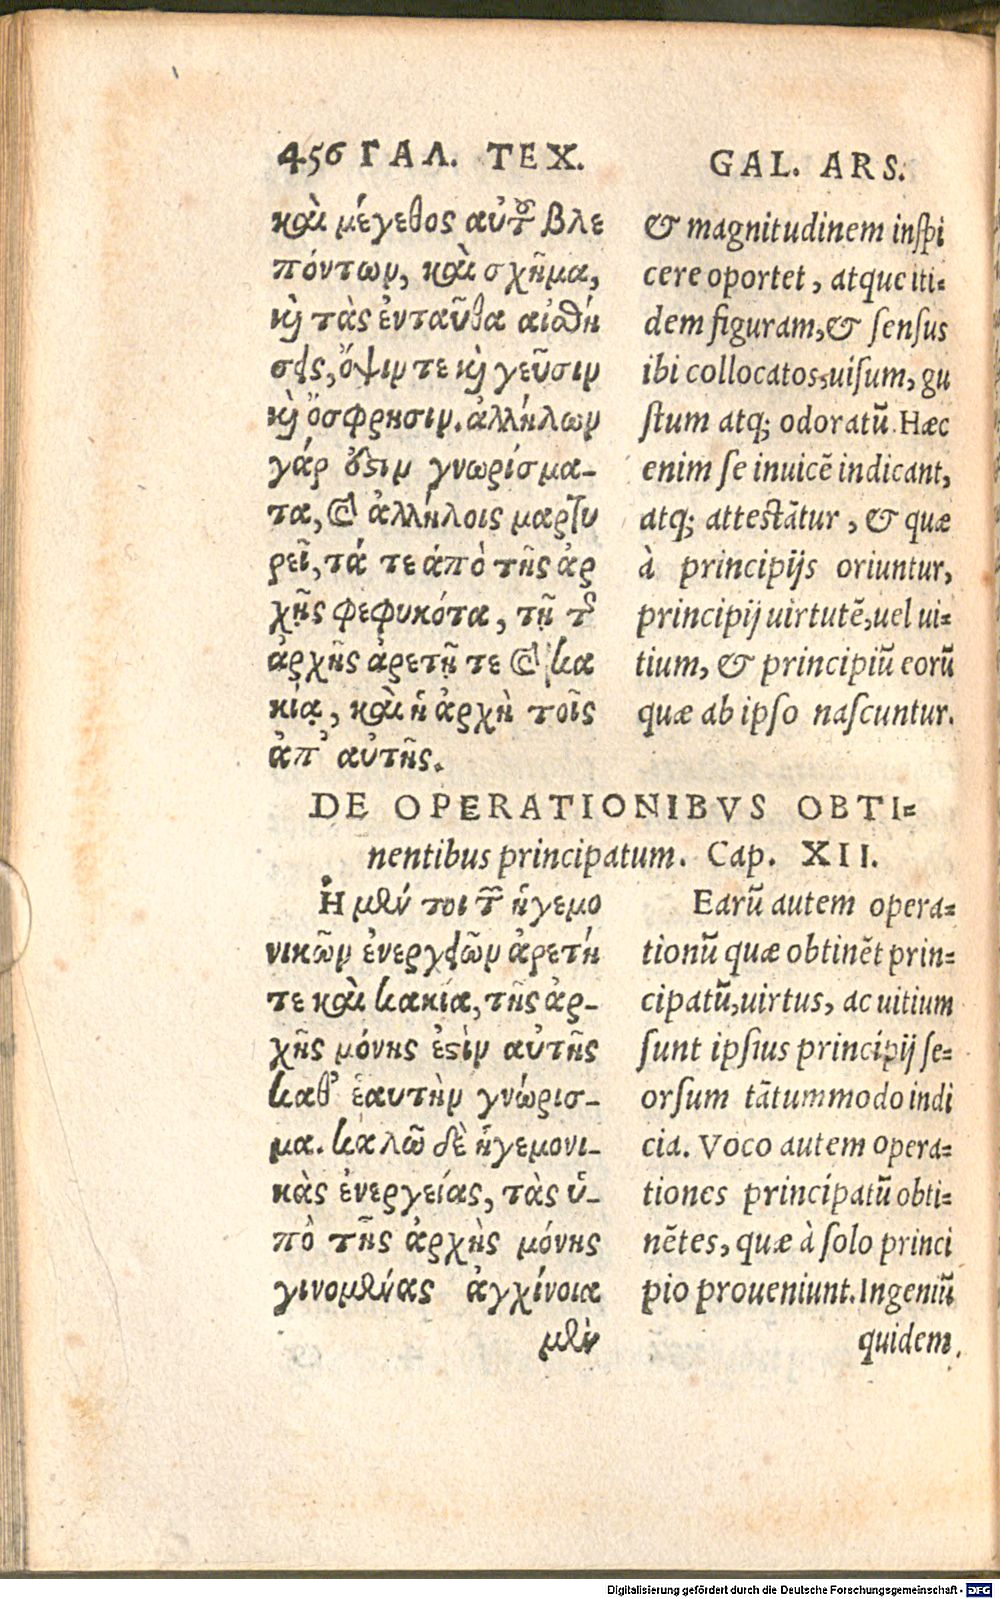 456 ΓΑΛ. ΤΕΧ.
καὶ μέγεθος αὐτοῦ βλε
πόντων, καὶ σχῆμα,
καὶ τὰς ἐνταῦθα αἰσθή
σεις, ὄψιν τε καὶ γεῦσιν
καὶ ὄσφρησιν. ἀλλήλων
γάρ ἐστιν γνωρίσμα-
τα, καὶ ἀλλήλοις μαρτυ
ρεῖ, τά τε ἀπὸ τῆς ἀρ
χῆς φεφυκότα, τῇ τῆς
ἀρχῆς ἀρετῇ τε καὶ κα
κίᾳ, καὶ ἡ ἀρχὴ τοῖς
ἀπ' αὐτῆς.
GAL. ARS.
& magnitudinem inspi
cere oportet, atque iti-
dem figuram, & sensus
ibi collocatos, uisum, gu
stum atq; odoratũ. Hæc
enim se inuicẽ indicant,
atq; attestãtur, & quæ
à principijs oriuntur,
principij uirtutẽ, uel ui-
tium, & principiũ eorũ
quæ ab ipso nascuntur.
DE OPERATIONIBVS OBTI-
nentibus principatum. Cap. XII.
Ἡ μέν τοι τῶν ἡγεμο
νικῶν ἐνεργειῶν ἀρετή
τε καὶ κακία, τῆς ἀρ-
χῆς μόνης ἐστὶν αὐτῆς
καθ' ἑαυτὴν γνώρισ-
μα. καλῶ δὲ ἡγεμονι-
κὰς ἐνεργείας, τὰς ὑ-
πὸ τῆς ἀρχῆς μόνης
γινομένας ἀγχίνοια
μὲν
Earũ autem opera-
tionũ quæ obtinẽt prin-
cipatũ, uirtus, ac uitium
sunt ipsius principij se-
orsum tãtummodo indi
cia. Voco autem opera-
tiones principatũ obti-
nẽtes, quæ à solo princi
pio proueniunt. Ingeniũ
quidem.
Digitalisierung gefördert durch die Deutsche Forschungsgemeinschaft - DFG